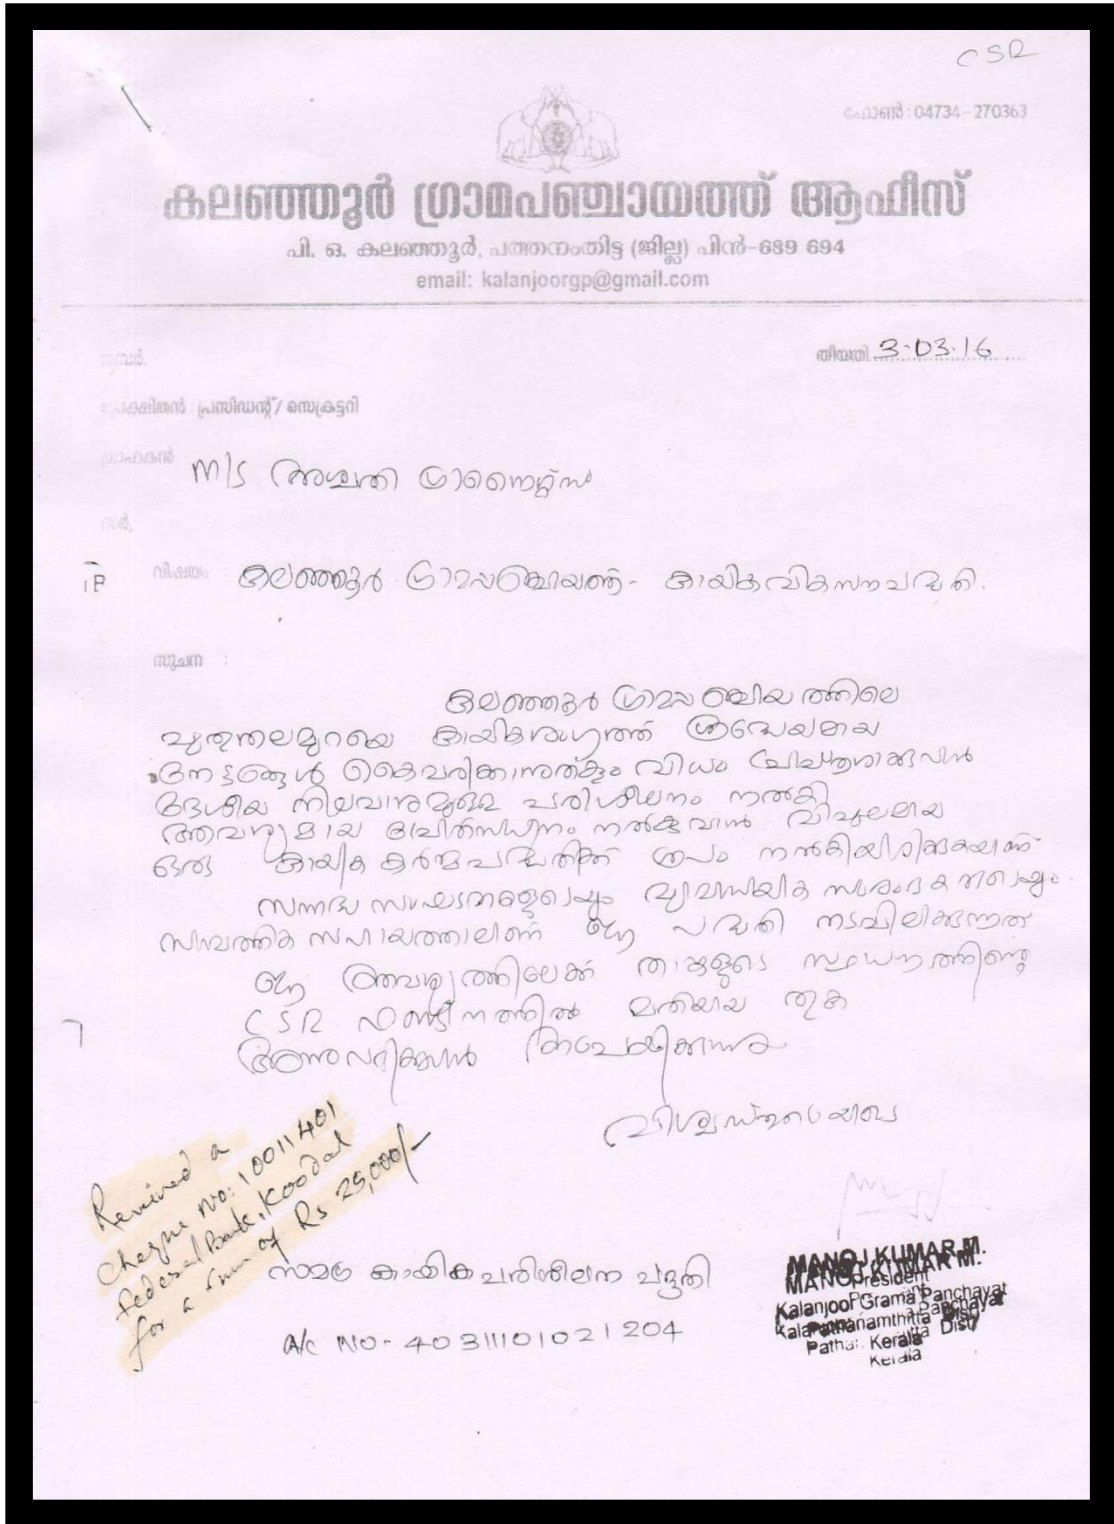 CSR
ഫോൺ : 04734-270363
കലഞ്ഞൂർ ഗ്രാമപഞ്ചായത്ത് ആഫീസ്
പി. ഒ. കലഞ്ഞൂർ, പത്തനംതിട്ട (ജില്ല) പിൻ-689 694
email: kalanjoorgp@gmail.com
നമ്പർ.
തീയതി 3-03-16
പ്രേക്ഷിതൻ : പ്രസിഡന്റ് / സെക്രട്ടറി
ഗ്രാഹകൻ M/s അശ്വതി ഗ്രാനൈറ്റ്സ്
സർ,
വിഷയം : കലഞ്ഞൂർ ഗ്രാമപഞ്ചായത്ത് - കായികവികസന പദ്ധതി.
സൂചന :
കലഞ്ഞൂർ ഗ്രാമപഞ്ചായത്തിലെ
പുതുതലമുറയെ കായികരംഗത്ത് ശ്രദ്ധേയമായ
നേട്ടങ്ങൾ കൈവരിക്കാനുതകും വിധം
ദേശീയ നിലവാരമുള്ള പരിശീലനം നൽകി
ആവശ്യമായ നൽകുവാൻ വിപുലമായ
ഒരു കായിക കർമ്മപദ്ധതിക്ക് രൂപം നൽകിയിരിക്കുകയാണ്
സന്നദ്ധ സംഘടനകളുടെയും വ്യാവസായിക സംരംഭകരുടെയും
സാമ്പത്തിക സഹായത്താലാണ് ഈ പദ്ധതി നടപ്പിലാക്കുന്നത്
ഈ ആവശ്യത്തിലേക്ക് താങ്കളുടെ സ്ഥാപനത്തിന്റെ
CSR ഫണ്ടിനത്തിൽ മതിയായ തുക
അനുവദിക്കുവാൻ താല്പര്യപ്പെടുന്നു
വിശ്വസ്തതയോടെ
Received a
cheque No: 10011401
Federal Bank, Koodal
for a sum of Rs 25,000/-
സമഗ്ര കായിക പരിശീലന പദ്ധതി
A/c No - 40311101021204
MANOJ KUMAR M.
President
Kalanjoor Grama Panchayat
Pathanamthitta Distt
Kerala